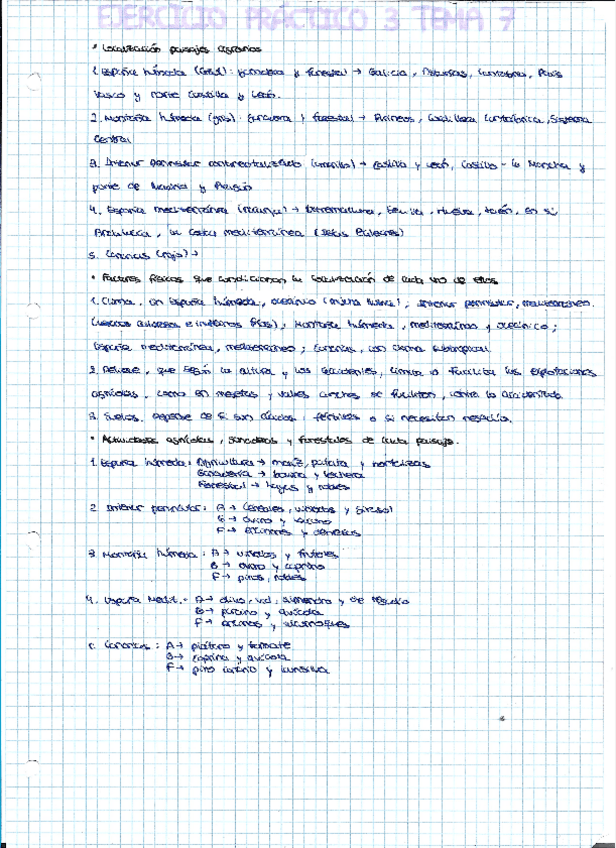 EJERCICIO PRÁCTICO 3 TEMA 7
• Localización paisajes agrarios
1. España húmeda : ganadera y forestal → Galicia, Asturias, Cantabria, País
Vasco y norte Castilla y León.
2. Montaña húmeda (gris): ganadera y forestal → Pirineos, Cordillera Cantábrica, Sistema
Central
3. Interior peninsular (amarillo) → Castilla y León, Castilla - la Mancha y
parte de Madrid y Aragón
4. España mediterránea (naranja) → Extremadura, Sevilla, Huelva, Jaén, en sí
Andalucía, la costa mediterránea (Islas Baleares)
5. Canarias (rojo) →
• Factores físicos que condicionan la localización de cada uno de ellos
1. Clima, en España húmeda, oceánico ; interior peninsular, mediterráneo
(veranos calurosos e inviernos fríos), montaña húmeda, mediterráneo y oceánico;
España mediterránea, mediterráneo; Canarias, con clima subtropical
2. Relieve, que según la altura y los accidentes, limita o facilita las explotaciones
agrícolas, como en mesetas y valles anchos se facilitan, contra lo accidentado
3. Suelos, depende de si son ácidos, fértiles o si necesitan regadío.
• Actividades agrícolas, ganaderas y forestales de cada paisaje.
1. España húmeda: Agricultura → maíz, patata y hortalizas
Ganadería → bovina y lechera
Forestal → hayas y robles
2. Interior peninsular: A → cereales, viñedos y girasol
G → ovino y vacuno
F → encinares y dehesas
3 Montaña húmeda: A → viñedos y frutales
G → ovino y caprino
F → pinos, robles
4. España Medit.: A → olivo, vid, almendro y de regadío
G → porcino y avícola
F → encinas y alcornoques
5. Canarias: A → plátano y tomate
G → caprina y avícola
F → pino canario y laurisilva